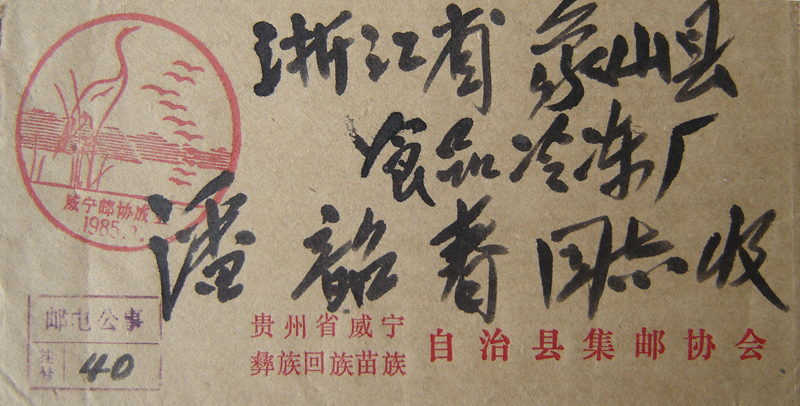 浙江省 象山县
食品冷冻厂
潘韶春同志收
威宁邮协成立
1985.
邮电公事
40
贵州省威宁
彝族回族苗族
自治县集邮协会